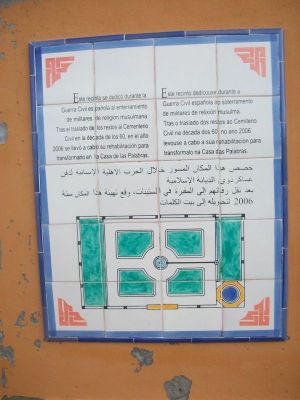 Este recinto se dedicó durante la
Guerra Civil española al enterramiento
de militares de religión musulmana.
Tras el traslado de los restos al Cementerio
Civil en la década de los 60, en el año
2006 se llevó a cabo su rehabilitación para
transformarlo en la Casa de las Palabras.
Este recinto dedicouse durante a
Guerra Civil española ao soterramento
de militares de relixión musulmana.
Tras o traslado dos restos ao Cemiterio
Civil na década dos 60, no ano 2006
levouse a cabo a súa rehabilitación para
transformalo na Casa das Palabras.
خصص هذا المكان المسور خلال الحرب الأهلية الإسبانية لدفن
عساكر ذوي الديانة الإسلامية
بعد نقل رفاتهم إلى المقبرة في الستينات، وقع تهيئة هذا المكان سنة
2006 لتحويله إلى بيت الكلمات